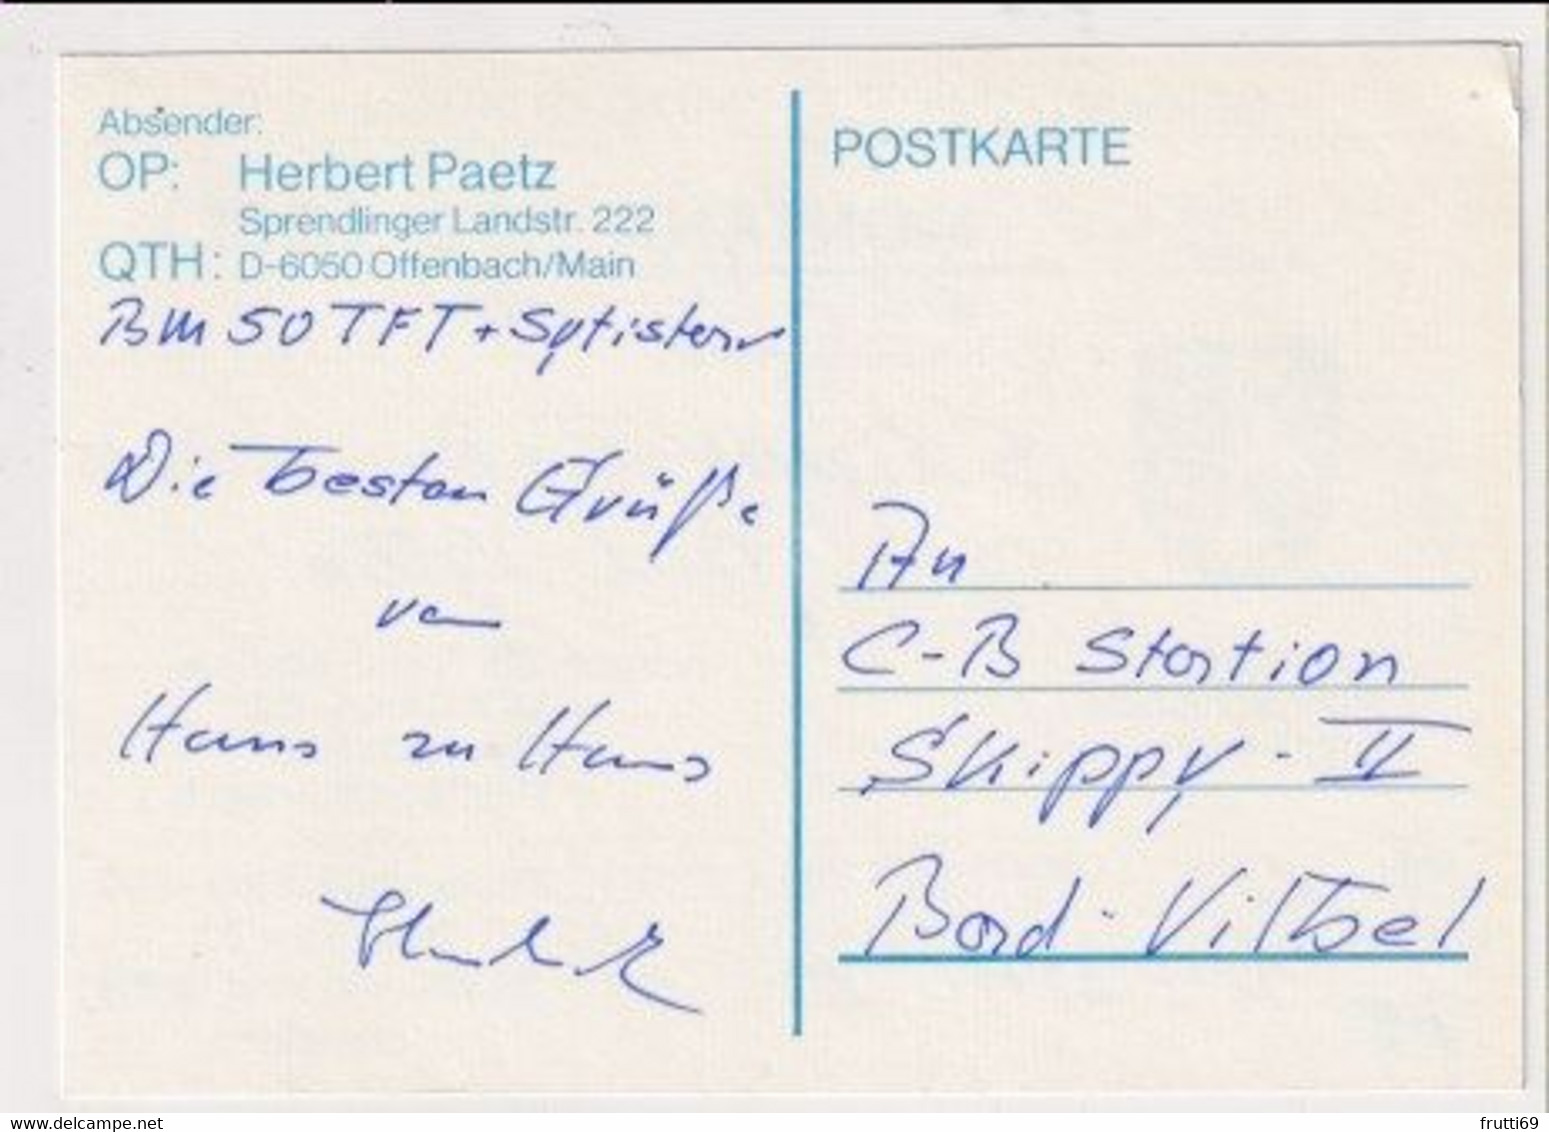 Absender:
OP: Herbert Paetz
Sprendlinger Landstr. 222
QTH: D-6050 Offenbach/Main
BM 50 TFT +
Die besten Grüße
von
Haus zu Haus
POSTKARTE
An
C-B Station
Skippy-II
Bad-Vilbel
delcampe.net
frutti69